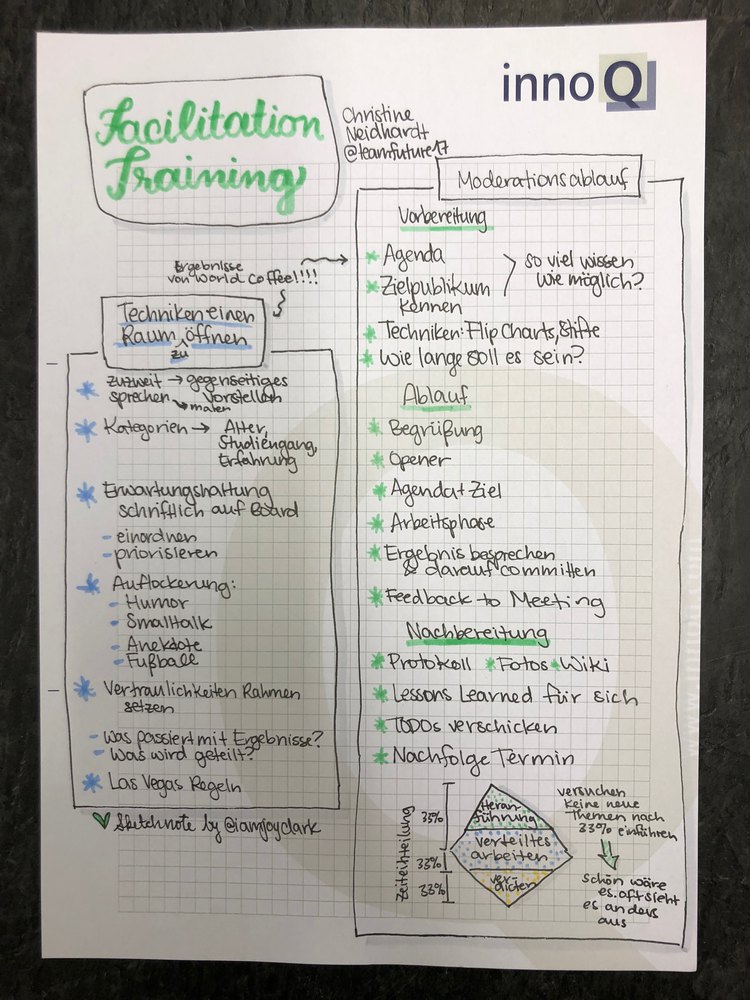 innoQ
Facilitation
Training
Christine
Neidhardt
@teamfuture17
Ergebnisse
von World Coffee!!!!
Techniken einen
Raum zu öffnen
zuzweit → gegenseitiges
sprechen vorstellen
malen
Kategorien → Alter,
Studiengang,
Erfahrung
Erwartungshaltung
schriftlich auf Board
- einordnen
- priorisieren
Auflockerung:
- Humor
- Smalltalk
- Anekdote
- Fußball
Vertraulichkeiten Rahmen
setzen
- Was passiert mit Ergebnisse?
- Was wird geteilt?
Las Vegas Regeln
Sketchnote by @iamjoyclark
Moderationsablauf
Vorbereitung
Agenda
Zielpublikum
kennen
so viel wissen
wie möglich?
Techniken: Flip Charts, Stifte
Wie lange soll es sein?
Ablauf
Begrüßung
Opener
Agenda + Ziel
Arbeitsphase
Ergebnis besprechen
& darauf committen
Feedback to Meeting
Nachbereitung
Protokoll * Fotos * Wiki
Lessons Learned für sich
TODOs verschicken
Nachfolge Termin
Zeiteinteilung
33%
33%
33%
Heran-
führung
verteiltes
arbeiten
ver-
dichten
versuchen
keine neue
Themen nach
33% einführen
schön wäre
es. oft sieht
es anders
aus